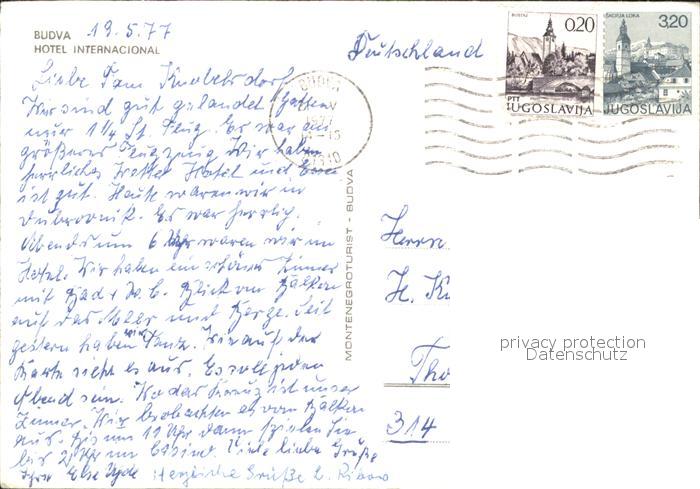 BUDVA 19.5.77
HOTEL INTERNACIONAL
Liebe Fam Knobelsdorf
Wir sind gut gelandet hatten
nur 1 1/4 St. Flug. Es war ein
größeres Flugzeug. Wir haben
herrliches Wetter Hotel und Essen
ist gut. Heute waren wir in
Dubrovnik. Es war herrlich.
Abends um 6 Uhr waren wir im
Hotel. Wir haben ein schönes Zimmer
mit Bad + W.C. Blick vom Balkon
auf das Meer und Berge. Seit
gestern haben wir Tanz. Wie auf der
Karte sieht es aus. Es soll jeden
Abend sein. Wo das Kreuz ist unser
Zimmer. Wir beobachten es vom Balkon
aus. Bis um 12 Uhr dann spielen sie
bis 2 Uhr im Casino. Viele liebe Grüße
Ihre Else Herzliche Grüße
MONTENEGROTURIST - BUDVA
Deutschland
0.20
PTT
JUGOSLAVIJA
ŠKOFJA LOKA
3,20
JUGOSLAVIJA
1977
Herrn
H. Kn
Tho
314
privacy protection
Datenschutz